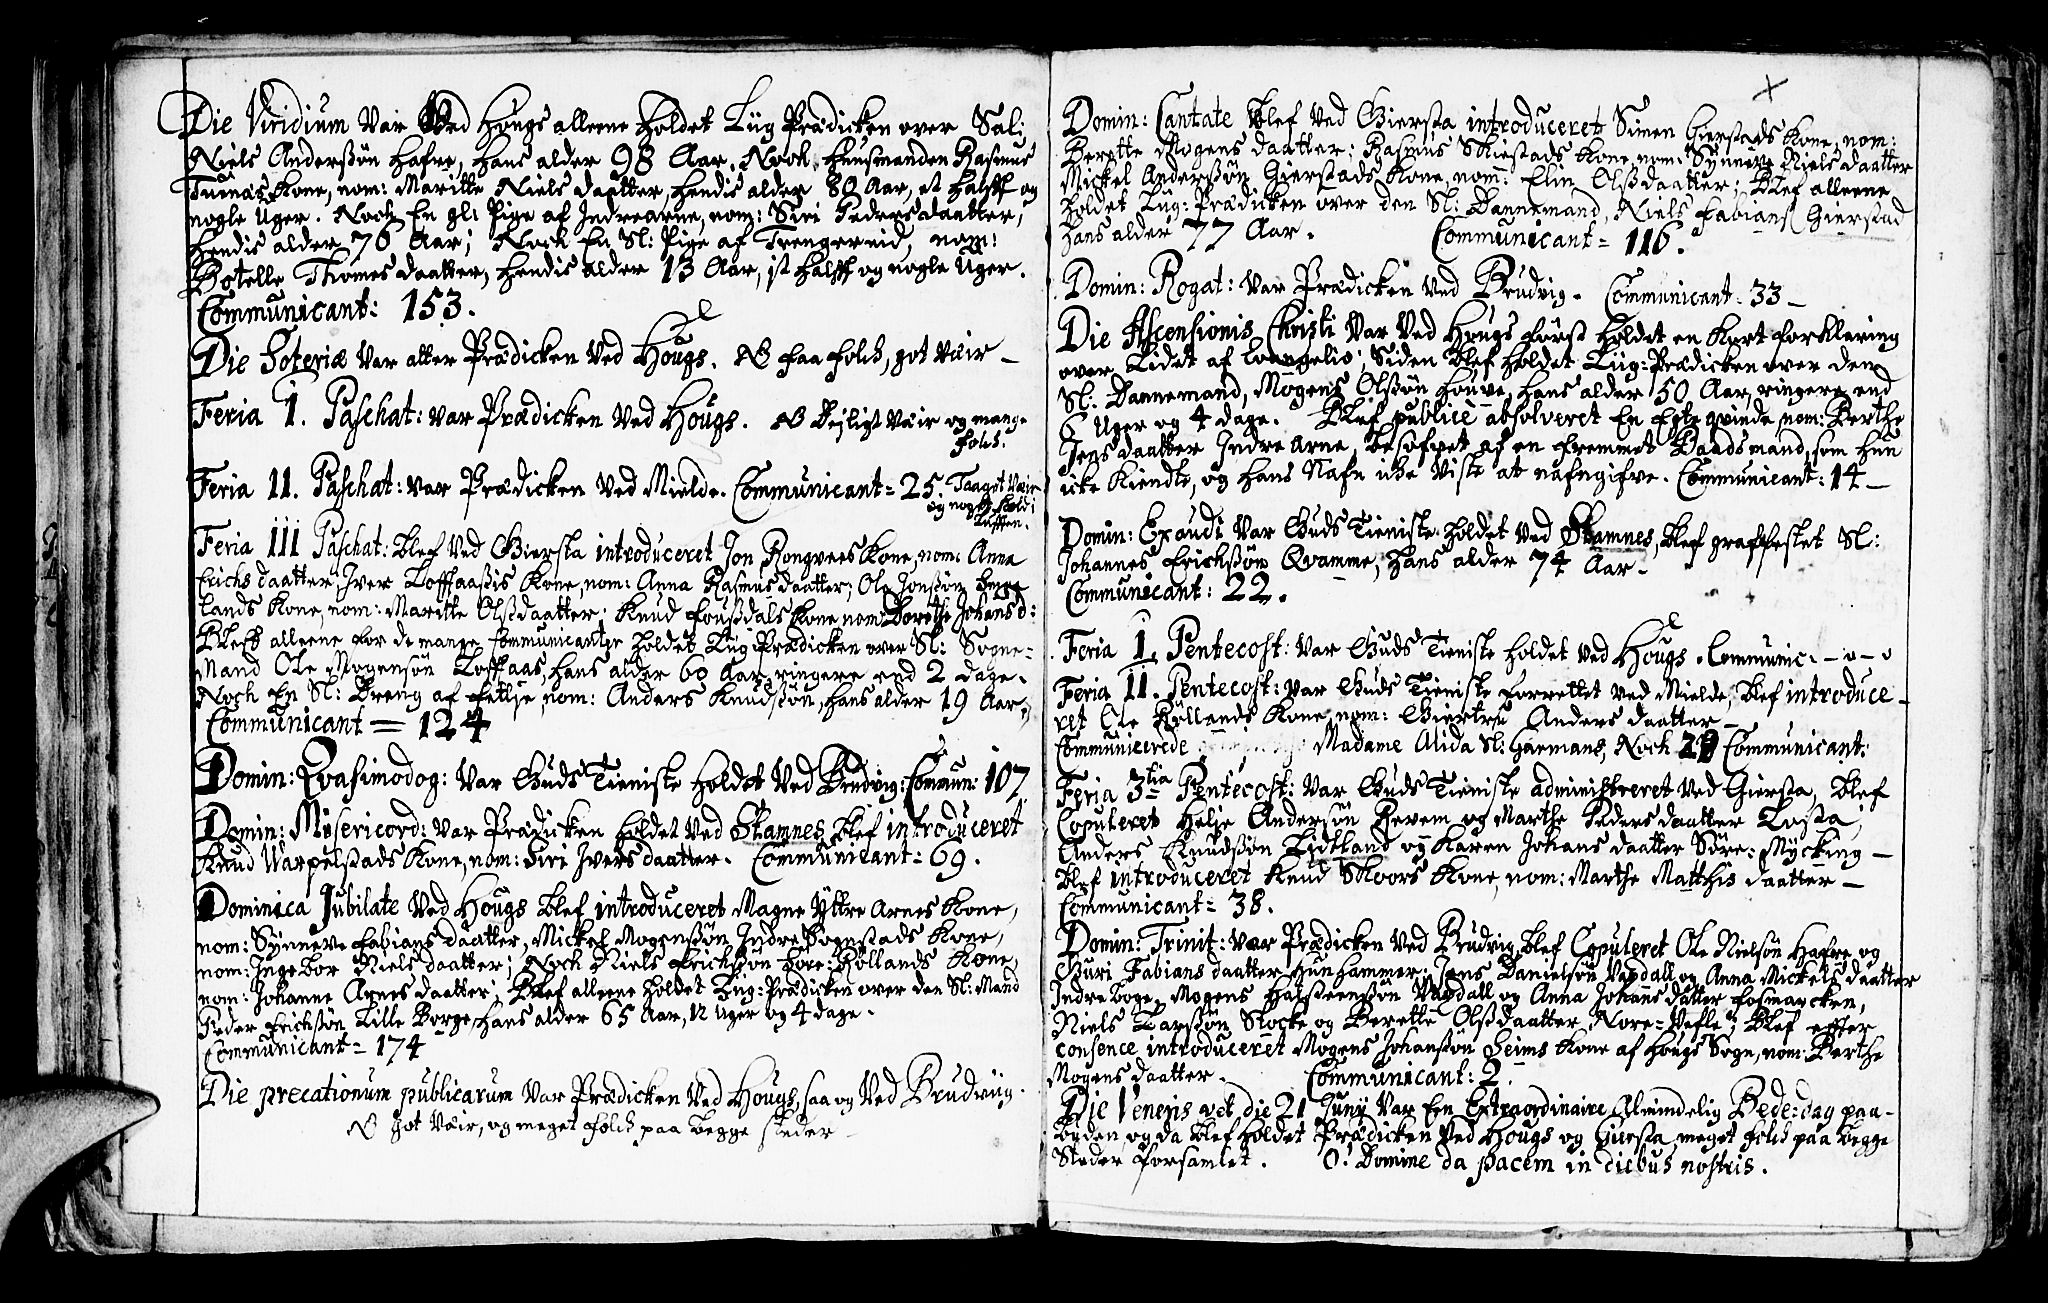 Die Viridium var Ved Hougs alleene holdet Liig Prædicken over Sali:
Niels Anderssøn Hafre, hans alder 98 Aar, Nock Huusmanden Rasmus
Kone, nom: Maritte Niels daatter, hendis alder 80 Aar, et halft og
nogle Uger. Nock En gl: Pige af Indrearne, nom: Siri Peders daatter,
hendis alder 76 Aar; Nock En Sl: Pige af Trengereid, nom:
Botelle Thomes daatter, hendis alder 13 Aar, ist halft og nogle Uger.
Communicant: 153.
Die Soteriæ var atter Prædicken Ved Hougs. NB faa folck, got Væir —
Feria I. Paschat: var Prædicken Ved Hougs. NB Dejligt Væir og mange
folck.
Feria II. Paschat: var Prædicken Ved Mielde. Communicant = 25. Taaget Vær
og noget kold i
Lufften.
Feria III Paschat: blef Ved Giersta introduceret Jon Rongvees Kone, nom: Anna
Erichs daatter; Iver Toffaassis Kone, nom: Anna Rasmus daatter; Ole Jonssøn
lands Kone, nom: Maritte Olssdaatter; Knud Foussdals Kone nom Dorethe Johans d:
Bleff alleene for de mange Communicanter holdet Liig Prædicken over Sl: Sogne-
Mand Ole Mogensøn Toffaas, hans alder 60 Aar, ringere end 2 dage.
Noch En Sl: Dreng af nom: Anders Knudssøn, hans alder 19 Aar,
Communicant = 124
Domin: Qvasimodog: var Guds Tieniste holdet Ved Brudvig: Commun: 107
Domin: Mysericord: var Prædicken holdet Ved Hamnes, blef introduceret
Knud Warpelstads Kone, nom: Siri Ivers daatter. Communicant = 69.
Dominica Jubilate Ved Hougs blef introduceret Magne Yttre Arnes Kone,
nom: Synneve Fabians daatter, Mickel Mogenssøn Indre Sognstads Kone,
nom: Ingebor Niels daatter; Nock Niels Erichssøn Rollands Kone,
nom: Johanne Arnes daatter; Blef alleene holdet Liig-Prædicken over den Sl: Mand
Peder Erichssøn Lille Borge, hans alder 65 Aar, 12 Uger og 4 dage.
Communicant = 174
Die precationum publicarum var Prædicken Ved Hougs, saa og Ved Brudviig.
NB got Vær, og meget folck paa begge steder —
Domin: Cantate blef Ved Giersta introduceret Simen Gierstads Kone, nom:
Berette Mogens daatter; Rasmus Skiestads Kone, nom: Synneve Niels daatter
Mickel Anderssøn Gierstads Kone, nom: Elin Olssdaatter; Blef alleene
holdet Liig-Prædicken over den Sl: Dannemand, Niels Fabians Gierstad
hans alder 77 Aar. Communicant = 116.
Domin: Rogat: var Prædicken Ved Brudvig. Communicant = 33 —
Die Ascensionis Christi var Ved Hougs først holdet en kort forklaring
over Tidet af Evangelio; Siden blef holdet Liig-Prædicken over den
Sl: Dannemand, Mogens Olssøn Houve, hans alder 50 Aar, ringere end
6 Uger og 4 dage. Blef publicè absolveret En Egteqvinde nom: Berthe
Jens daatter Indre Arne, besofvet af en fremmet Baadsmand, som hun
icke kiendte, og hans Nafn icke viste at nafngifve. Communicant: 14 —
Domin: Exaudi var Guds Tieniste holdet Ved Hamnes, blef graffestet Sl:
Johannes Erichssøn Qvamme, hans alder 74 Aar.
Communicant: 22.
Feria I. Pentecost: var Guds Tieniste holdet Ved Hougs. Communic: — 0 — 0
Feria II. Pentecost: var Guds Tieniste forrettet ved Mielde, blef introduce-
ret Ole Røllands Kone, nom: Giertru Anders daatter —
Communicerede Madame Alida Sl: Harmans, Nock 29 Communicant:
Feria 3tia Pentecost: var Guds Tieniste administreret ved Giersta, blef
Copuleret Helje Anderssøn Revem og Marthe Peders daatter Tosta,
Anders Knudssøn Lidtland og Karen Johans daatter Søre: Mycking —
blef introduceret Knud Skoors Kone, nom: Marthe Matthis daatter —
Communicant = 38.
Domin: Trinit: var Prædicken Ved Brudvig, blef Copuleret Ole Nielsøn Hafre og
Guri Fabians daatter Hunhammer; Jens Danielsøn Vaxdall og Anna Mickels daatter
Indre boge, Mogens Halsteenssøn Vaxdall og Anna Johans datter Fosmarcken,
Niels Larssøn Stocke og Berette Olssdaatter Nore-Vefle; Blef efter
consence introduceret Mogens Johanssøn Seims Kone af Hougs Sogn, nom: Berthe
Mogens daatter. Communicant: 2.
Die Veneris vel die 21 Junij var En Extraordinaire Almindelig Bede-dag paa-
byden, og da blef holdet Prædicken ved Hougs og Giersta, meget folck paa begge
Steder forsamlet. O! Domine da pacem in diebus nostris.